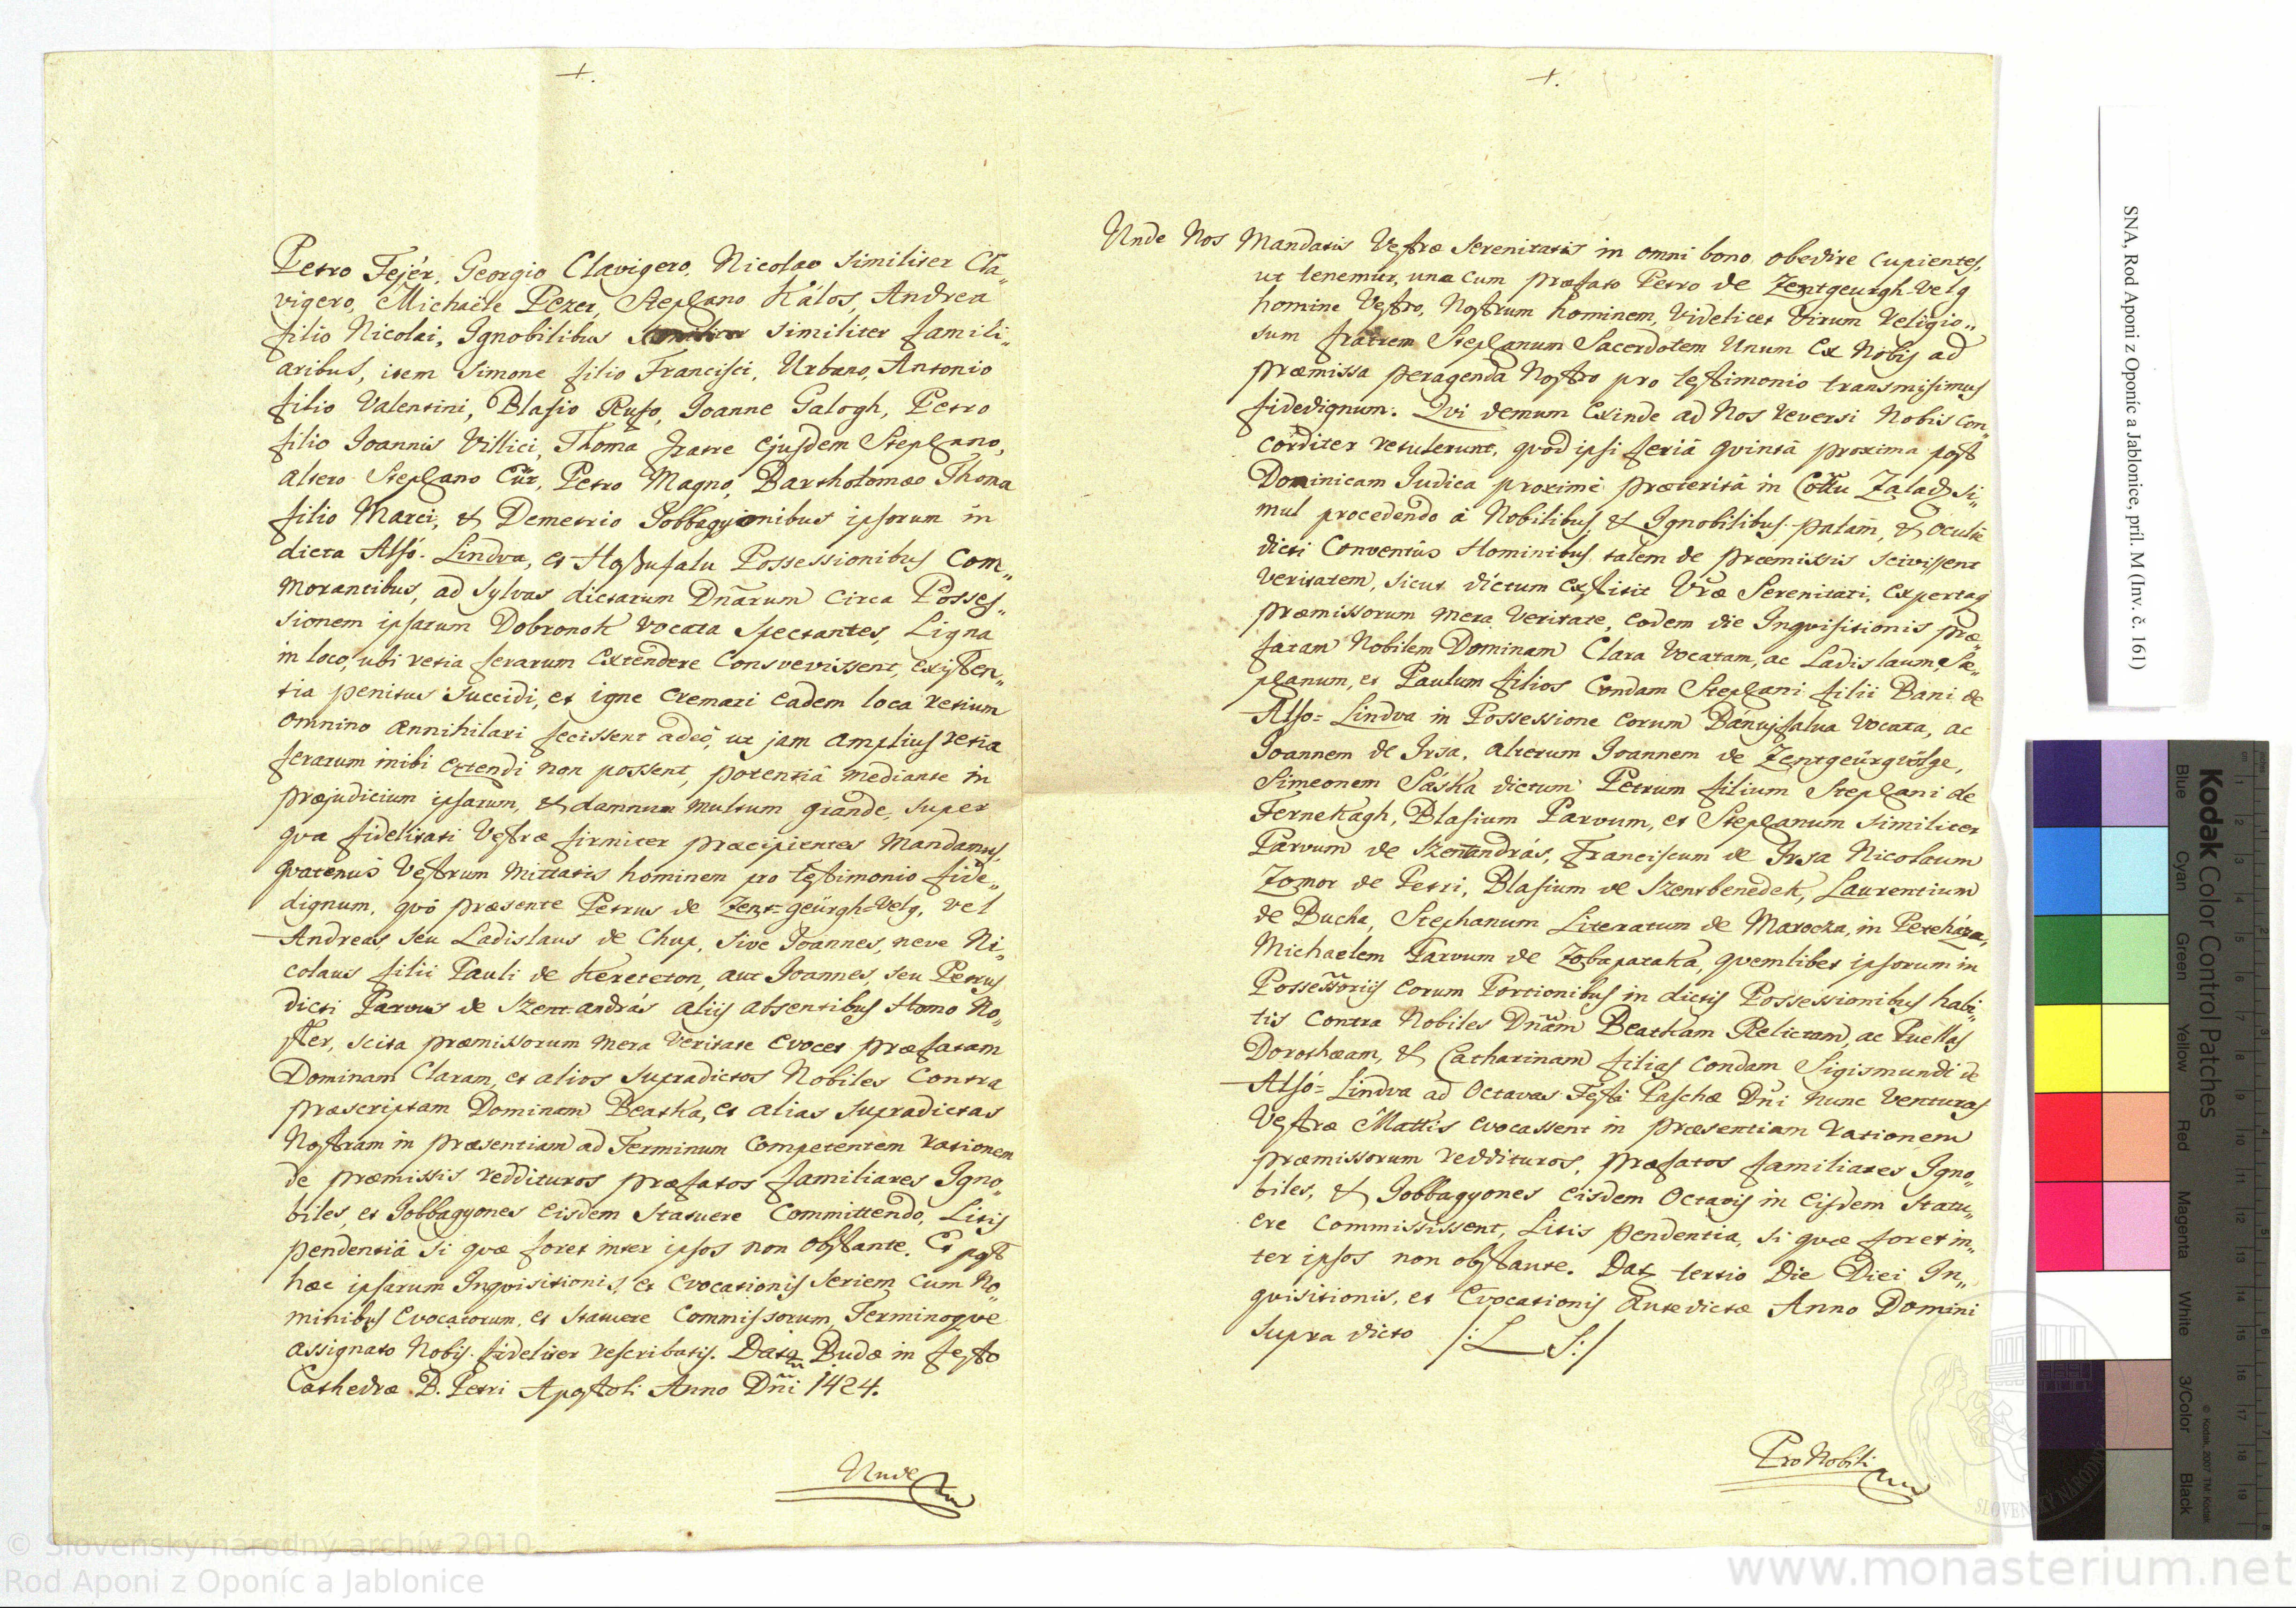 +.
Petro Fejér, Georgio Clavigero, Nicolao similiter Cla„
vigero, Michaële Pezer, Stephano Kálos, Andrea
filio Nicolai, Ignobilibus similiter famili„
aribus, item Simone filio Francisci, Urbano, Antonio
filio Valentini, Blasio Rufo, Joanne Galogh, Petro
filio Joannis Villici, Thoma fratre ejusdem Stephano,
altero Stephano Cür, Petro Magno, Bartholomæo Thoma
filio Marci, & Demetrio Jobbagyonibus ipsorum in
dicta Alsó-Lindva, et Hoszufalu Possessionibus Com„
morantibus, ad sylvas dictarum Dnãrum circa Posses„
sionem ipsarum Dobronok vocata spectantes, Ligna
in loco, ubi retia ferarum extendere consvevissent, existen„
tia penitus succidi, et igne cremari eadem loca retium
omnino annihilari fecissent adeò, ut jam amplius retia
ferarum inibi extendi non possent, potentiâ mediante in
præjudicium ipsarum, & damnum multum grande, super
qva fidelitati Vestræ firmiter præcipientes Mandamus,
qvatenus Vestrum mittatis hominem pro testimonio fide„
dignum, qvô præsente Petrus de Zent-geürgh-Velg, vel
Andreas, seu Ladislaus de Chup, sive Joannes, neve Ni„
colaus filii Pauli de Kereteton, aut Joannes, seu Petrus
dicti Parvus de Szent-andrás aliis absentibus Homo No„
ster, scita præmissorum mera veritate evocet præfatam
Dominam Claram, et alios supradictos Nobiles contra
præscriptam Dominam Beatka, et alias supradictas
Nostram in præsentiam ad Terminum competentem rationem
de præmissis reddituros præfatos familiares Igno„
biles, et Jobbagyones eisdem statuere committendo, Litis
pendentiâ si qvæ foret inter ipsos non obstante. Et post
hæc ipsarum Inqvisitionis, et evocationis seriem cum No„
minibus evocatorum, et statuere commissorum, Terminoqve
assignato Nobis fideliter rescribatis. Data Budæ in festo
Cathedræ B. Petri Apostoli Anno Dñi 1424.
Unde
+.
Unde Nos Mandatis Vestræ Serenitatis in omni bono obedire cupientes,
ut tenemur, una cum præfato Petro de Zentgeurgh-Velg
homine Vestro, Nostrum hominem, videlicet Virum Religio„
sum fratrem Stephanum Sacerdotem Unum ex Nobis ad
præmissa peragenda Nostro pro testimonio transmisimus
fidedignum. Qvi demum exinde ad Nos reversi Nobis con„
corditer retulerunt, qvòd ipsi feriâ qvintâ proxima post
Dominicam Judica proximè præteritâ in Cottu Zalad. si„
mul procedendo à Nobilibus, & Ignobilibus palam, & occultè
dicti Conventûs Hominibus talem de præmissis scivissent
veritatem, sicut dictum extitit Vræ Serenitati, expertaq
præmissorum mera veritate, eodem die Inqvisitionis præ„
fatam Nobilem Dominam Clara vocatam, ac Ladislaum, Ste„
phanum, et Paulum filios condam Stephani filii Bani de
Alsó=Lindva in Possessione eorum Bánujfalva vocata, ac
Joannem de Irsa, alterum Joannem de Zentgeürgvölge,
Simeonem Sáska dictum Petrum filium Stephani de
Fernekagh, Blasium Parvum, et Stephanum similiter
Parvum de Szentandrás, Franciscum de Irsa Nicolaum
Zomor de Petri, Blasium de Szentbenedek, Laurentium
de Bucha, Stephanum Literatum de Marocza, in Peteháza,
Michaelem Parvum de Zobapataka, qvemlibet ipsorum in
Possessoriis eorum Portionibus in dictis Possessionibus habi„
tis contra Nobiles Dnãm Beatkam Relictam, ac Puellas
Dorotheam, & Catharinam filias condam Sigismundi de
Alsó=Lindva ad Octavas Festi Paschæ Dñi nunc venturas
Vestræ Mattis evocassent in præsentiam rationem
præmissorum reddituros, præfatos familiares Igno„
biles, & Jobbagyones eisdem Octavis in eisdem statu„
ere commississent, Litis pendentia, si qvæ foret in„
ter ipsos non obstante. Dat tertio Die Diei In„
qvisitionis, et Evocationis Antedictæ Anno Domini
supra dicto /: L S :/
Pro Nobili
SNA, Rod Aponi z Oponíc a Jablonice, príl. M (Inv. č. 161)
Kodak Color Control Patches
© Kodak, 2007 TM: Kodak
Blue Cyan Green Yellow Red Magenta White 3/Color Black
© Slovenský národný archív 2010
Rod Aponi z Oponíc a Jablonice
www.monasterium.net